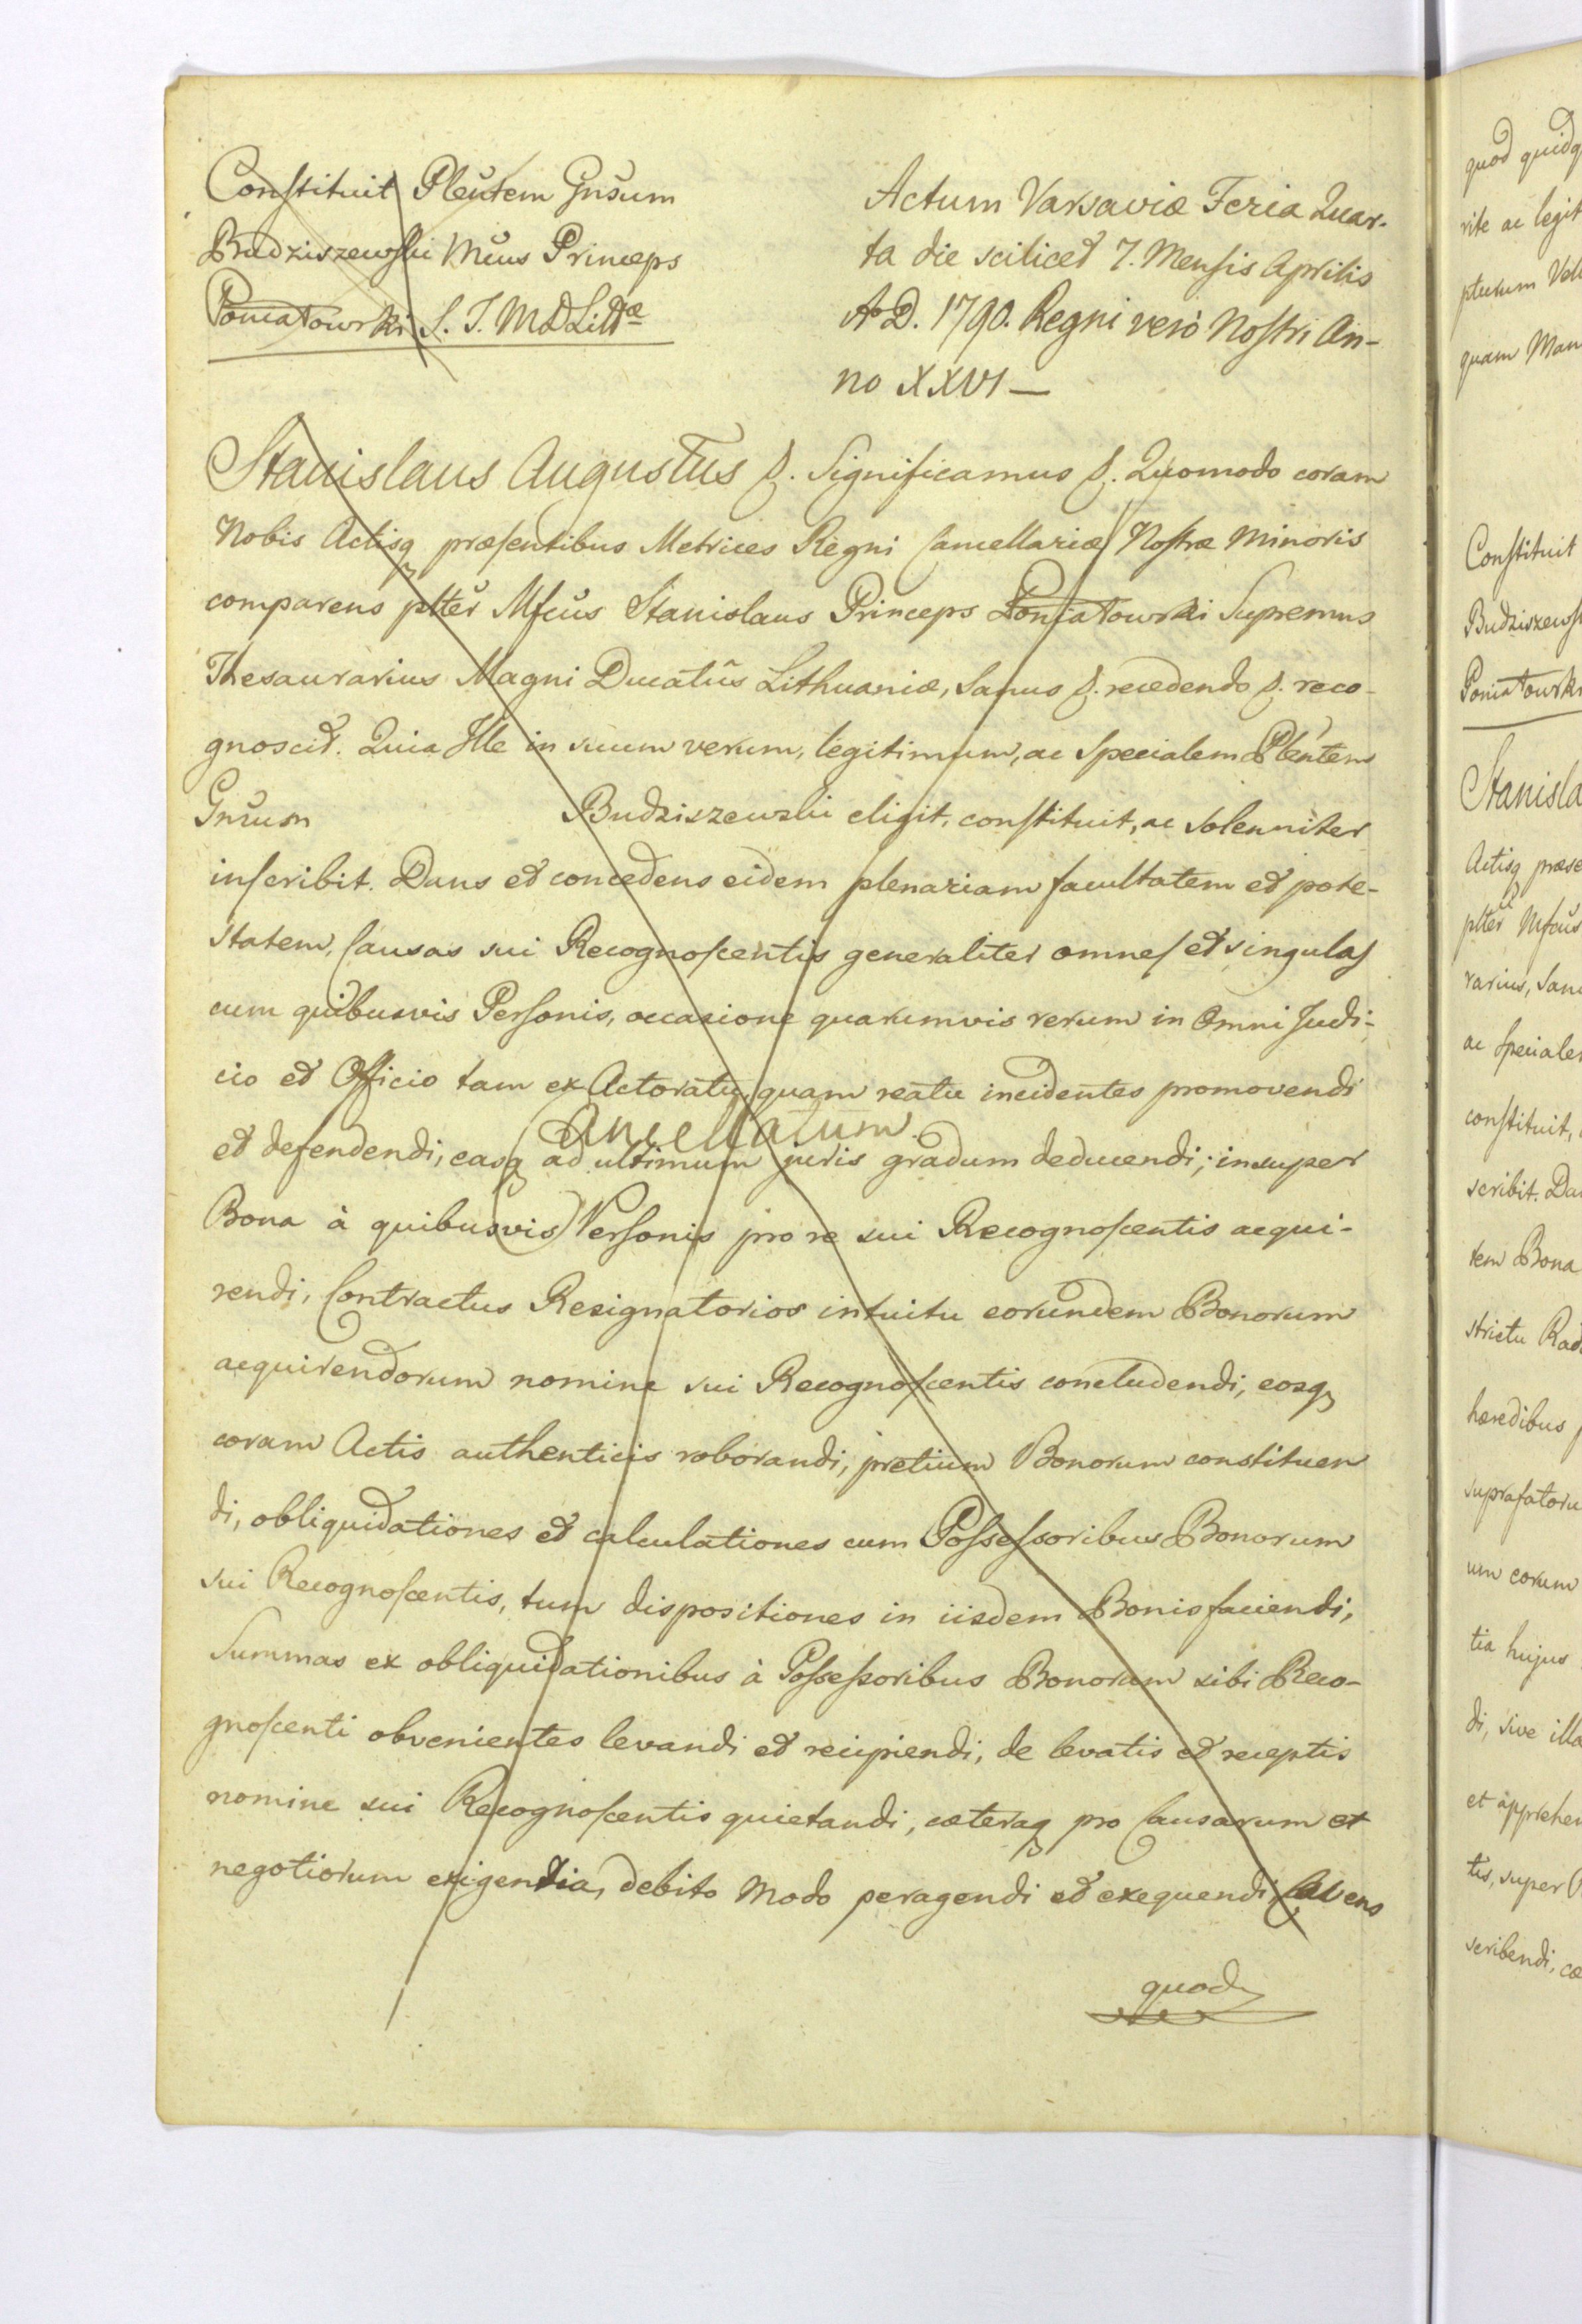 Constituit Pleūtem Gnsūm
Budziszewski Mcūs Princeps
Poniatowski S. T. M D Littæ
Actum Varsaviæ Feria Quar-
ta die scilicet 7. Mensis Aprilis
Ao D. 1790. Regni verò Nostri An-
no XXVI —
Stanislaus Augustus &. Significamus &. Quomodo coram
Nobis Actisq præsentibus Metrices Regni Cancellariæ Nostræ Minoris
comparens pltter Mfcūs Stanislaus Princeps Poniatowski Supremus
Thesaurarius Magni Ducatūs Lithuaniæ, Sanus &. recedendo &. reco-
gnoscit. Quia Ille in suum verum, legitimum, ac Specialem Pleūtem
Gnsūm Budziszewski eligit, constituit, ac Solenniter
inscribit. Dans et concedens eidem plenariam facultatem et pote-
statem, Causas sui Recognoscentis generaliter omnes et singulas
cum quibusvis Personis, occasione quarumvis rerum in Omni Judi-
cio et Officio tam ex Actoratu, quam reatu incidentes promovendi
Cancellatum.
et defendendi, easq ad ultimum juris gradum deducendi; insuper
Bona à quibusvis Personis pro re sui Recognoscentis acqui-
rendi, Contractus Resignatorios intuitu eorundem Bonorum
acquirendorum nomine sui Recognoscentis concludendi, eosq
coram Actis authenticis roborandi, pretium Bonorum constituen
di, obliquidationes et calculationes cum Possessoribus Bonorum
sui Recognoscentis, tum dispositiones in iisdem Bonis faciendi,
Summas ex obliquidationibus à Possessoribus Bonorum sibi Reco-
gnoscenti obvenientes levandi et recipiendi, de levatis et receptis
nomine sui Recognoscentis quietandi, cæteraq pro Causarum et
negotiorum exigentia, debito Modo peragendi et exequendi, Cavens
quod
quod quidq
rite ac legit
ptuum Vel
quam Man
Constituit
Budziszews
Poniatowski
Stanisla
Actisq præse
pltter Mfcūs
rarius, San
ac Speciale
constituit,
scribit. Da
tem Bona
strictu Rad
hæredibus
suprafatoru
um eorum
tia hujus
di, sive illa
et apprehen
tis, super
scribendi, cæ